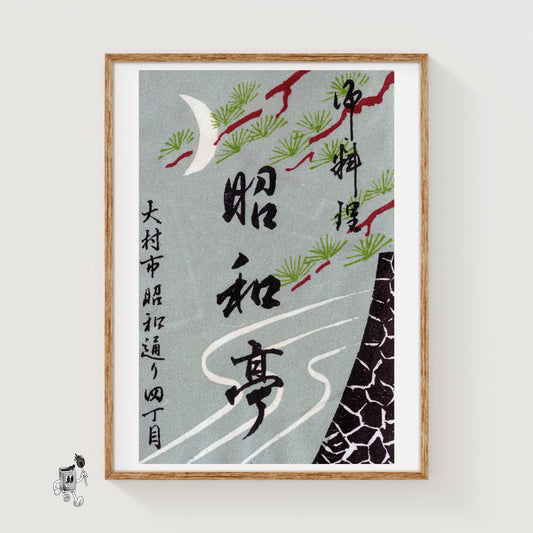 御料理
昭和亭
大村市昭和通り四丁目